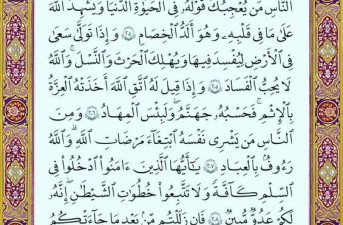 النَّاسِ مَن يُعْجِبُكَ قَوْلُهُۥ فِى ٱلْحَيَوٰةِ ٱلدُّنْيَا وَيُشْهِدُ ٱللَّهَ
عَلَىٰ مَا فِى قَلْبِهِۦ وَهُوَ أَلَدُّ ٱلْخِصَامِ ٢٠٤ وَإِذَا تَوَلَّىٰ سَعَىٰ
فِى ٱلْأَرْضِ لِيُفْسِدَ فِيهَا وَيُهْلِكَ ٱلْحَرْثَ وَٱلنَّسْلَ ۗ وَٱللَّهُ
لَا يُحِبُّ ٱلْفَسَادَ ٢٠٥ وَإِذَا قِيلَ لَهُ ٱتَّقِ ٱللَّهَ أَخَذَتْهُ ٱلْعِزَّةُ
بِٱلْإِثْمِ ۚ فَحَسْبُهُۥ جَهَنَّمُ ۚ وَلَبِئْسَ ٱلْمِهَادُ ٢٠٦ وَمِنَ
ٱلنَّاسِ مَن يَشْرِى نَفْسَهُ ٱبْتِغَآءَ مَرْضَاتِ ٱللَّهِ ۗ وَٱللَّهُ
رَءُوفٌۢ بِٱلْعِبَادِ ٢٠٧ يَـٰٓأَيُّهَا ٱلَّذِينَ ءَامَنُوا۟ ٱدْخُلُوا۟ فِى
ٱلسِّلْمِ كَآفَّةً وَلَا تَتَّبِعُوا۟ خُطُوَٰتِ ٱلشَّيْطَـٰنِ ۚ إِنَّهُۥ
لَكُمْ عَدُوٌّ مُّبِينٌ ٢٠٨ فَإِن زَلَلْتُم مِّنۢ بَعْدِ مَا جَآءَتْكُمُ